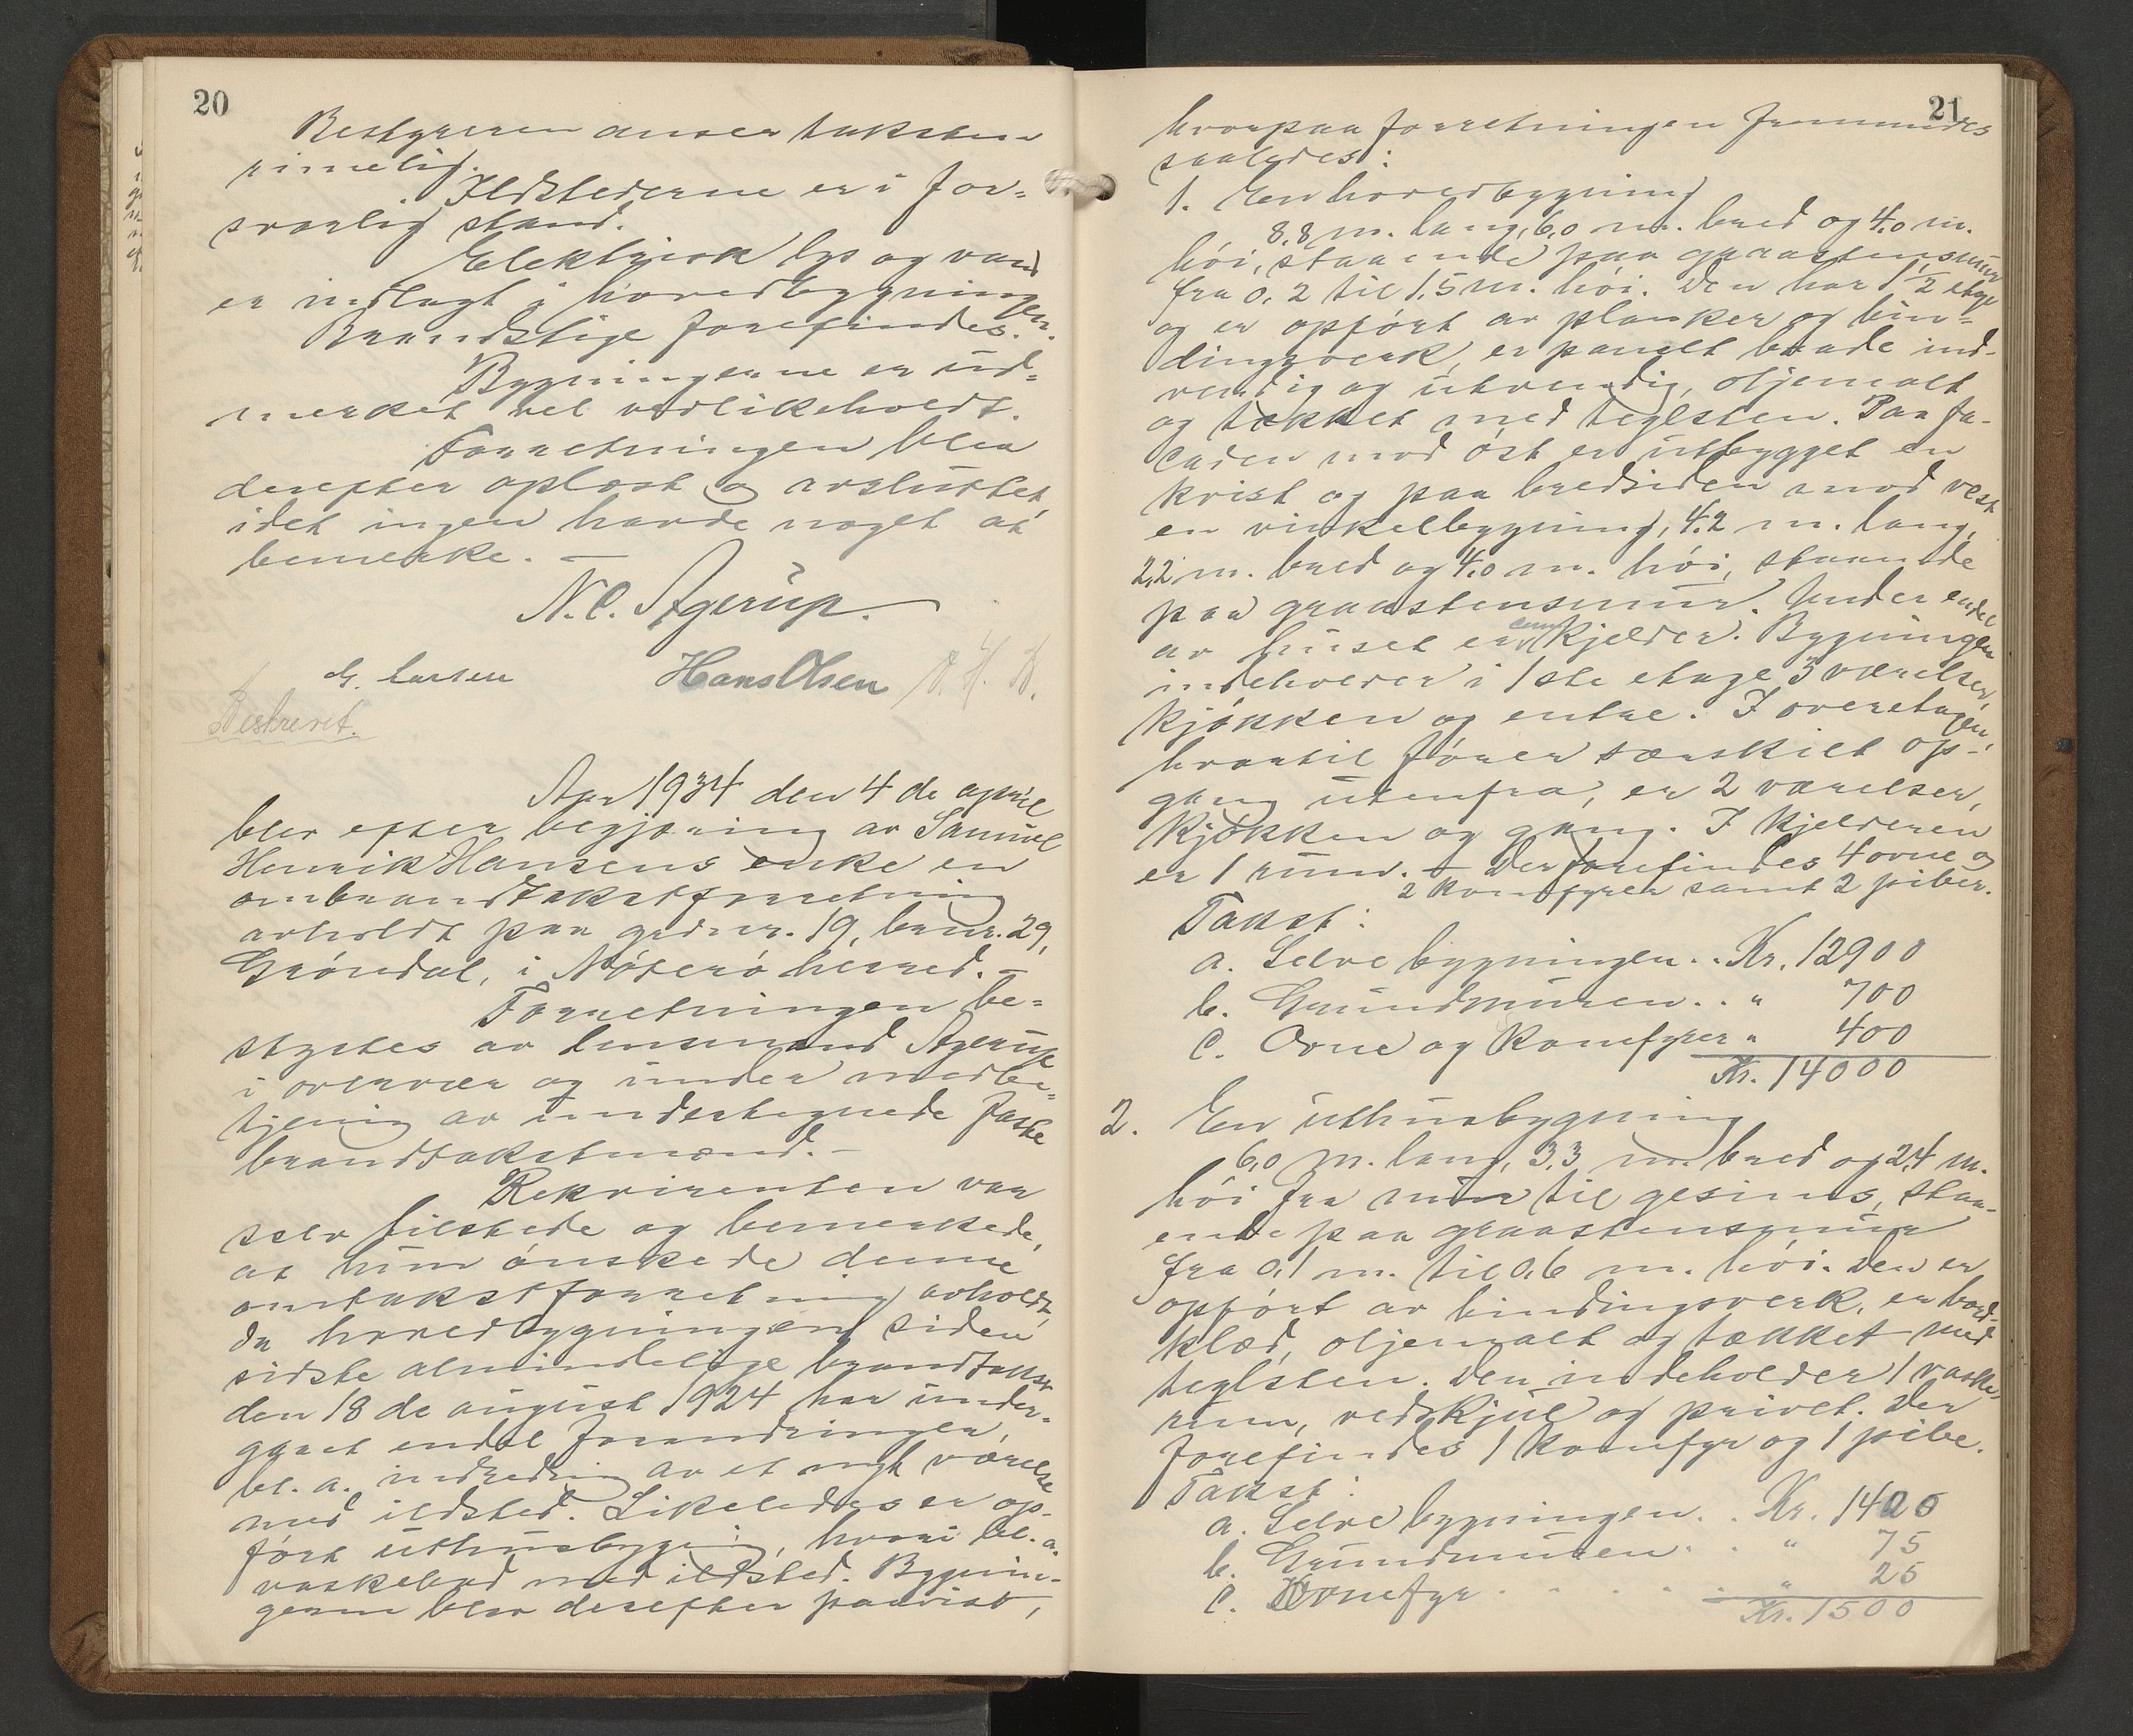 20
Bestyreren anser taksten
rimelig.
Ildstederne er i for-
svarlig stand.
Elektrisk lys og vand
er indlagt i hovedbygningen.
Brandstige forefindes.
Bygningerne er ud-
merket vel vedlikeholdt.
Forretningen blev
derefter oplæst og avsluttet
idet ingen havde noget at
bemerke. —
N.C. Agerup.
G. Larsen
Hans Olsen
Beskrevet.
Aar 1934 den 4de april
blev efter begjæring av Samuel
Henrik Hansens enke en
ombrandtakstforretning
avholdt paa grdnr. 19, brnr. 29,
Gröndal, i Nöterö herred. —
Forretningen be-
styrtes av lensmand Agerup
i overvær og under medbe-
tjening av undertegnede faste
brandtakstmænd. —
Rekvirenten var
selv tilstede og bemerkede,
at hun önskede denne
omtakstforretning avholdt,
da hovedbygningen siden
sidste almindelige brandtakst
den 18de august 1924 har under-
gaaet endel forandringer,
bl. a. indredning av et nyt værelse
med ildsted. Likeledes er op-
fört uthusbygning, hvori bl. a.
vaskekjeld med ildsted. Bygnin-
gerne blev derefter paavist,
21
hvorpaa forretningen fremmedes
saaledes:
1. En hovedbygning
8,8 m. lang, 6,0 m. bred og 4,0 m.
höi, staaende paa graastensmur
fra 0,2 til 1,5 m. höi. Den har 1 1/2 etage
og er opfört av planker og bin-
dingsverk, er panelt baade ind-
vendig og utvendig, oljemalt
og tækket med teglsten. Paa fa-
caden mod öst er utbygget en
kvist og paa bredsiden mod vest
en vinkelbygning, 4,2 m. lang,
2,2 m. bred og 4,0 m. höi, staaende
paa graastensmur. Under endel
av huset er kjelder. Bygningen
indeholder i 1ste etage 3 værelser,
kjökken og entre. I overetagen,
hvortil förer særskilt op-
gang utenfra, er 2 værelser,
kjökken og gang. I kjelderen
er 1 rum. — Der forefindes 4 ovne og
2 komfyrer samt 2 piber.
Takst:
a. Selve bygningen . . Kr. 12900
b. Grundmuren . . " 700
c. Ovne og komfyrer " 400
Kr. 14000
2. En uthusbygning
6,0 m. lang, 3,3 m. bred og 2,4 m.
höi fra mur til gesims, staa-
ende paa graastensmur
fra 0,1 m. til 0,6 m. höi. Den er
opfört av bindingsverk, er bord-
klæd, oljemalt og tækket med
teglsten. Den indeholder 1 vaske-
rum, vedskjul og privet. Der
forefindes 1 komfyr og 1 pibe.
Takst:
a. Selve bygningen . . Kr. 1400
b. Grundmuren . . " 75
c. Komfyr . . . . . " 25
Kr. 1500